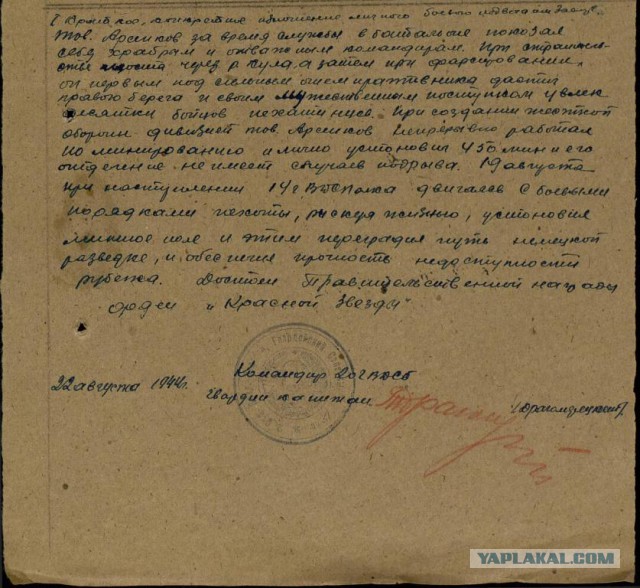 I Краткое, конкретное изложение личного боевого подвига или заслуг.
Тов. Арсиков за время службы в батальоне показал
себя храбрым и отважным командиром. При
моста через р а затем при форсировании,
он первым под сильным огнем противника достиг
правого берега и своим мужественным поступком увлек
десятки бойцов пехотинцев. При создании жесткой
обороны дивизией тов. Арсиков непрерывно работал
по минированию и лично установил 450 мин и его
отделение не имеет случаев подрыва. 19 августа
при наступлении 14 г ВДСПолка двигаясь с боевыми
порядками пехоты, рискуя жизнью, установил
минное поле и этим преградил путь немецкой
разведке, и обеспечил прочность недоступности
рубежа. Достоин Правительственной награды
орден „Красной Звезды"
Командир
22 августа 1944 г. гвардии капитан
YAPLAKAL.COM